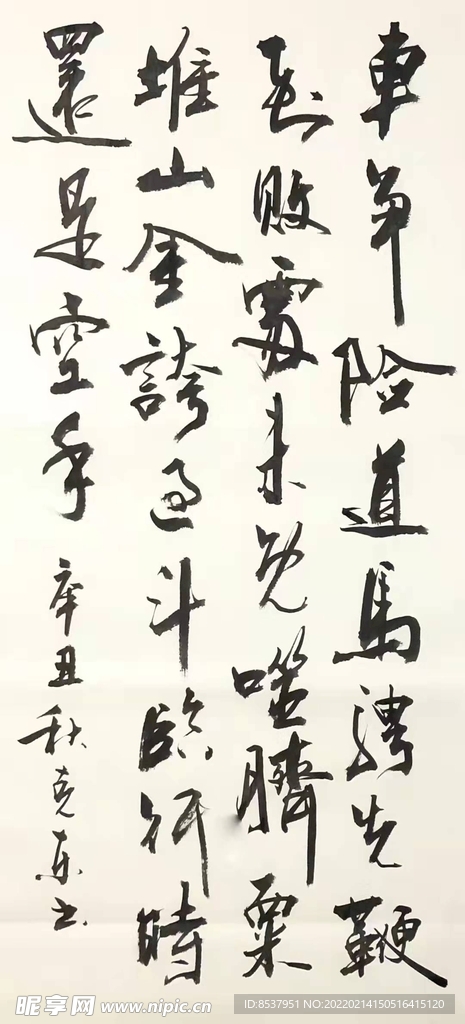 車爭險道馬騁先鞭
到敗處未免噬臍粟
堆山金誇過斗臨行時
還是空手
辛丑秋克東書
昵享网 www.nipic.cn
ID:8537951 NO:20220214150516415120